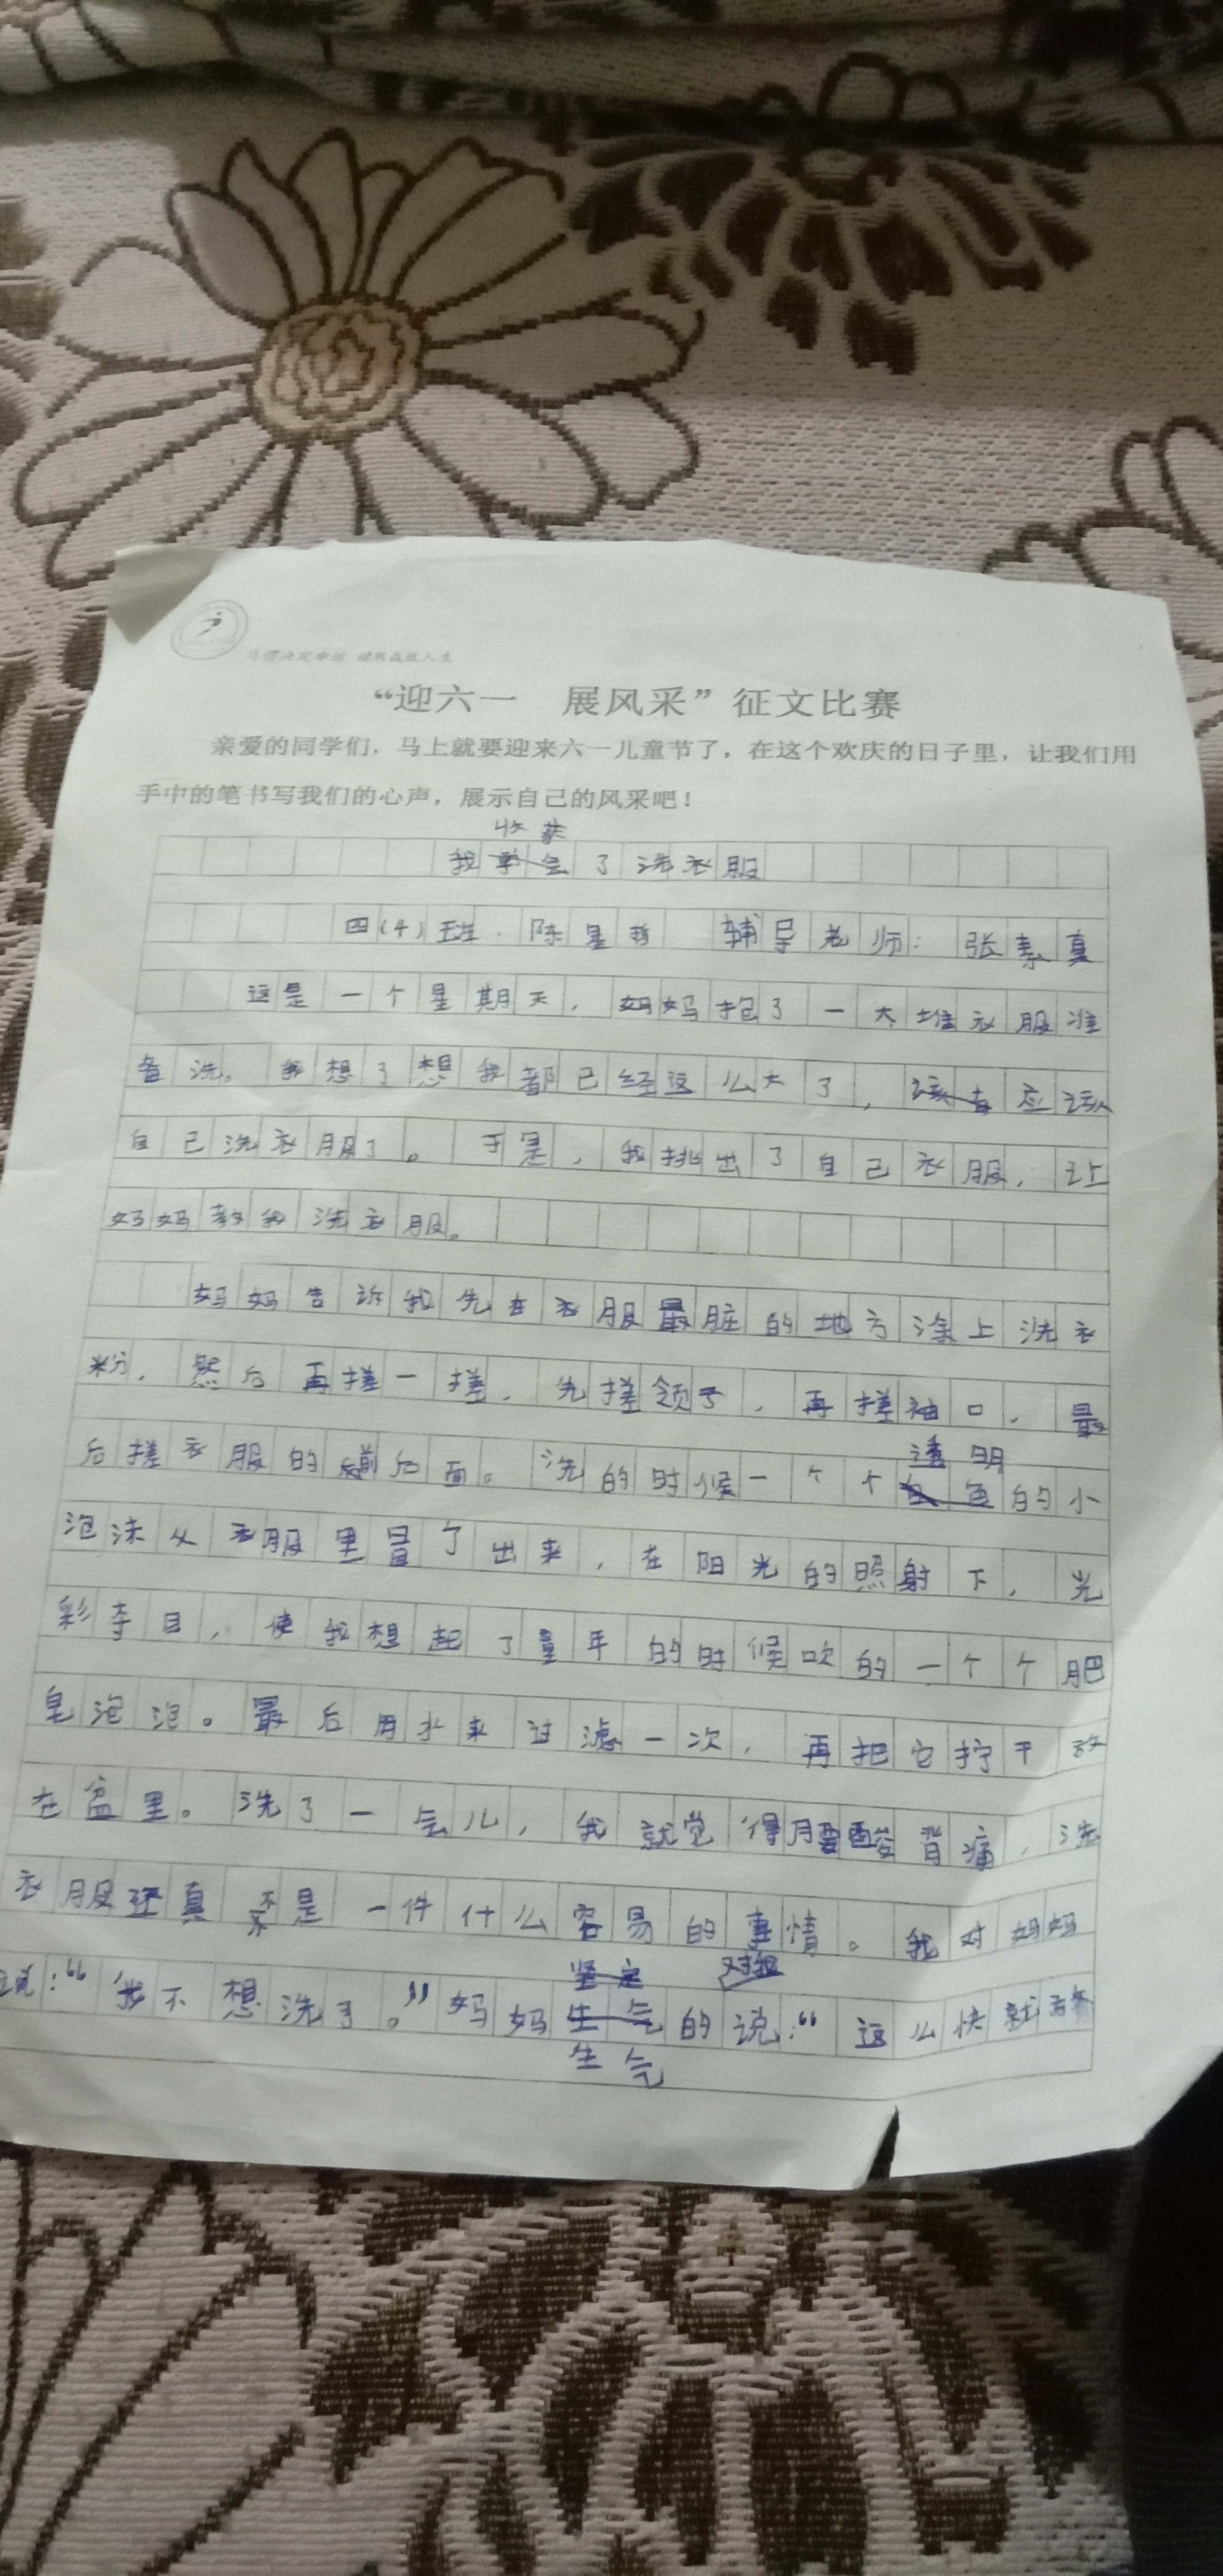 习惯决定命运 读书成就人生
“迎六一 展风采”征文比赛
亲爱的同学们，马上就要迎来六一儿童节了，在这个欢庆的日子里，让我们用
手中的笔书写我们的心声，展示自己的风采吧！
收获
我学会了洗衣服
四(4)班 陈星 辅导老师：张素真
这是一个星期天，妈妈抱了一大堆衣服准
备洗。我想了想我都已经这么大了，应该
自己洗衣服了。于是，我挑出了自己衣服，让
妈妈教我洗衣服。
妈妈告诉我先在衣服最脏的地方涂上洗衣
粉，然后再搓一搓，先搓领子，再搓袖口，最
透明
后搓衣服的前后面。洗的时候一个个白色的小
泡沫从衣服里冒了出来，在阳光的照射下，光
彩夺目，使我想起了童年的时候吹的一个个肥
皂泡泡。最后用水来过滤一次，再把它拧干放
在盆里。洗了一气儿，我就觉得腰酸背痛，洗
衣服还真不是一件什么容易的事情。我对妈妈
坚定 对我
说：“我不想洗了。”妈妈生气的说：“这么快就
生气